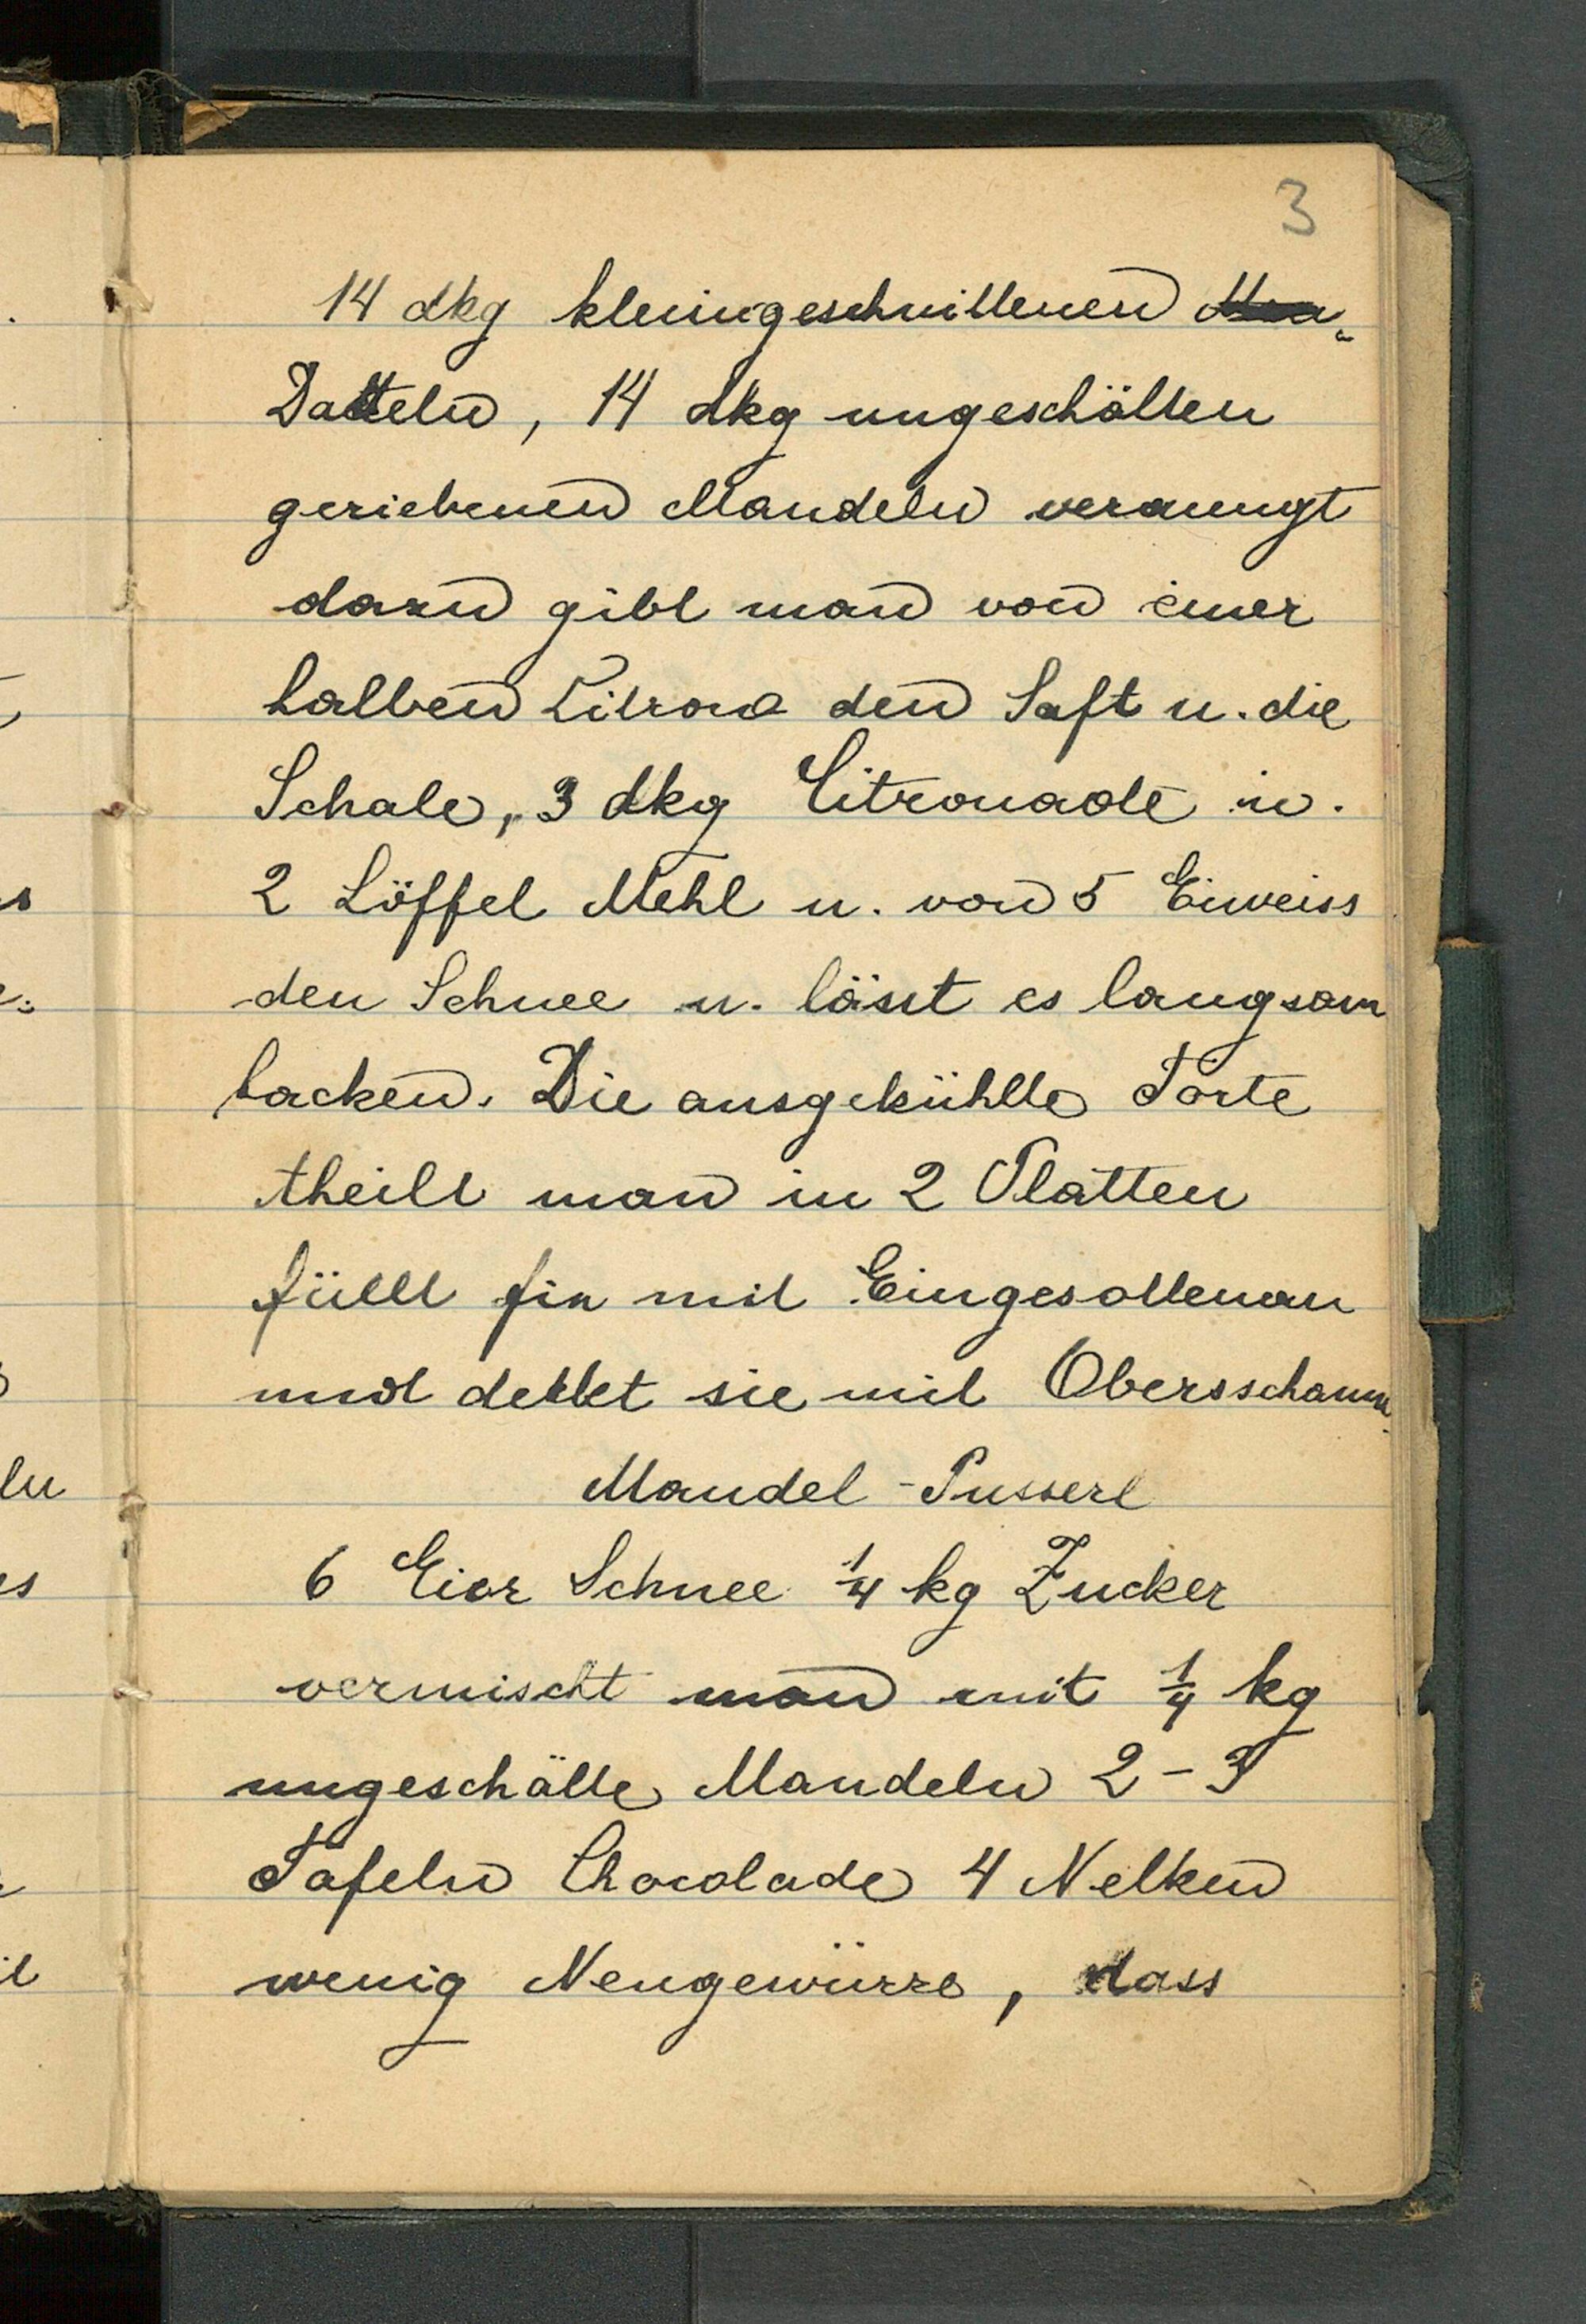 3
14 dkg kleingeschnittenen
Datteln, 14 dkg ungeschälten
geriebenen Mandeln vermengt
dazu gibt man von einer
halben Zitrone den Saft u. die
Schale, 3 dkg Citronade u.
2 Löffel Mehl u. von 5 Eiweiss
den Schnee u. lässt es langsam
backen. Die ausgekühlte Torte
theilt man in 2 Platten
füllt sie mit Eingesottenen
und decket sie mit Obersschaum.
Mandel-Pusserl
6 Eier Schnee ¼ kg Zucker
vermischt man mit ¼ kg
ungeschälte Mandeln 2-3
Tafeln Chocolade 4 Nelken
wenig Neugewürze, dass